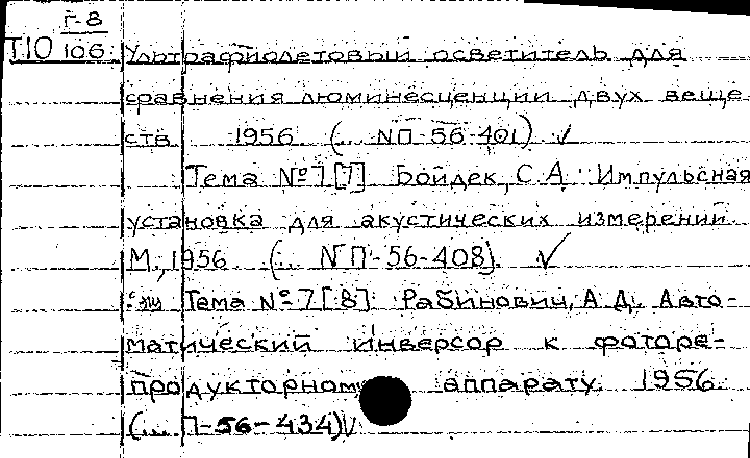 Г-8
Т10 106 Ультрафиолетовый осветитель для
сравнения люминесценции двух веще
ств 1956. (... №П-56-401) ✓
Тема №7[7] Бойдек, С.А. Импульсная
установка для акустических измерений.
М., 1956. (... №П-56-408). ✓
Тема №7[8]. Рабинович, А.Д. Авто-
матический инверсор к фоторе-
продукторному аппарату. 1956.
(... П-56-434) ✓